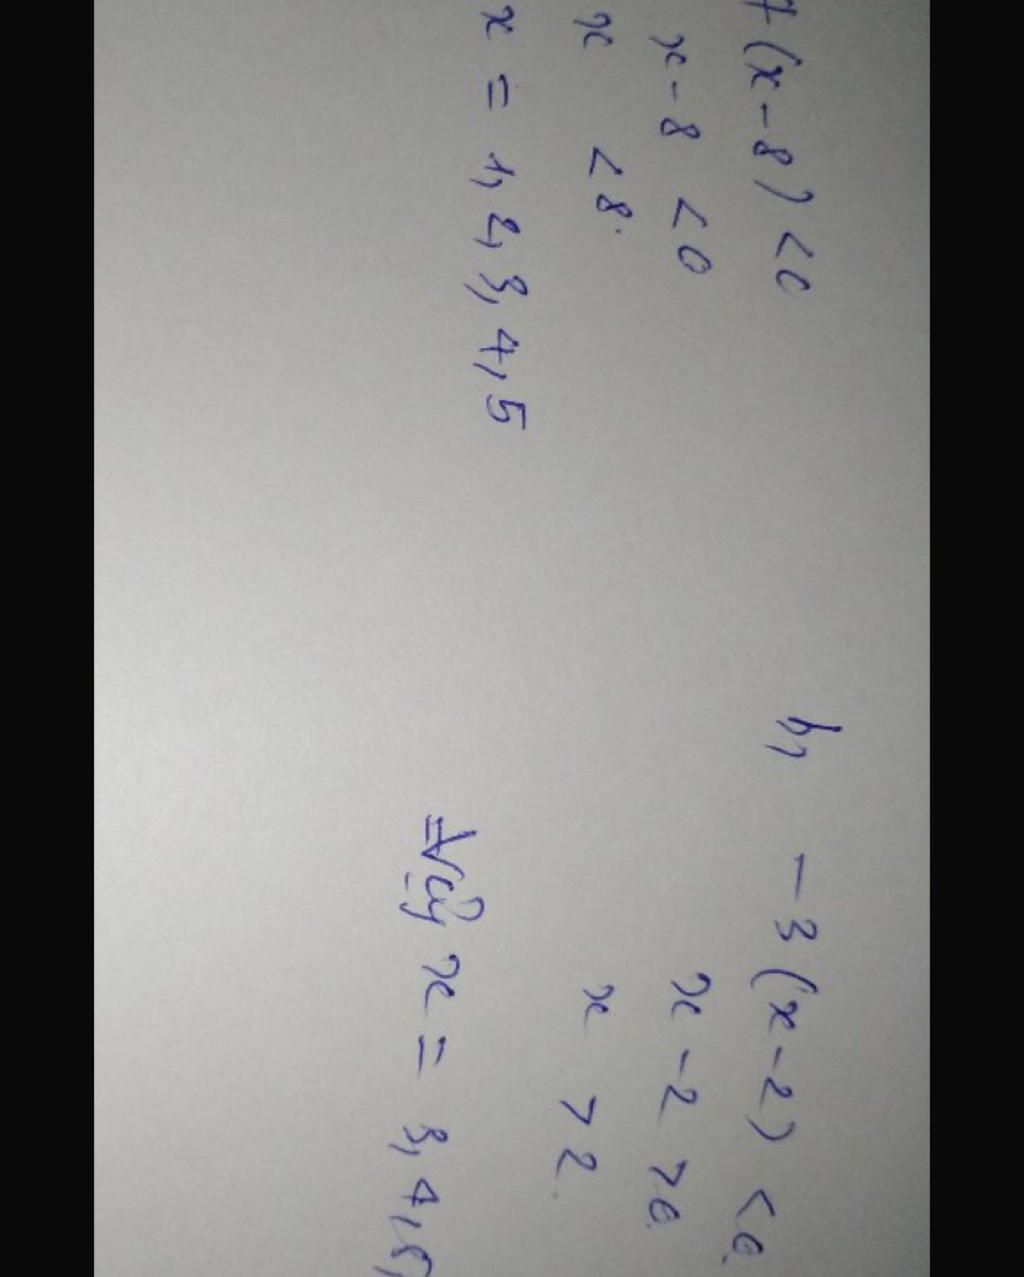 7(x-8)<0
x-8 <0
x <8.
x = 1, 2, 3, 4, 5
h, -3(x-2) <0
x-2 >0
x >2
=> Vậy x = 3, 4, 5,